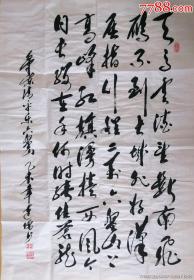 天高云淡望断南飞
雁不到长城非好汉
屈指行程二万六盘山上
高峰红旗漫卷西风今
日长缨在手何时缚住苍龙
清平乐六盘山